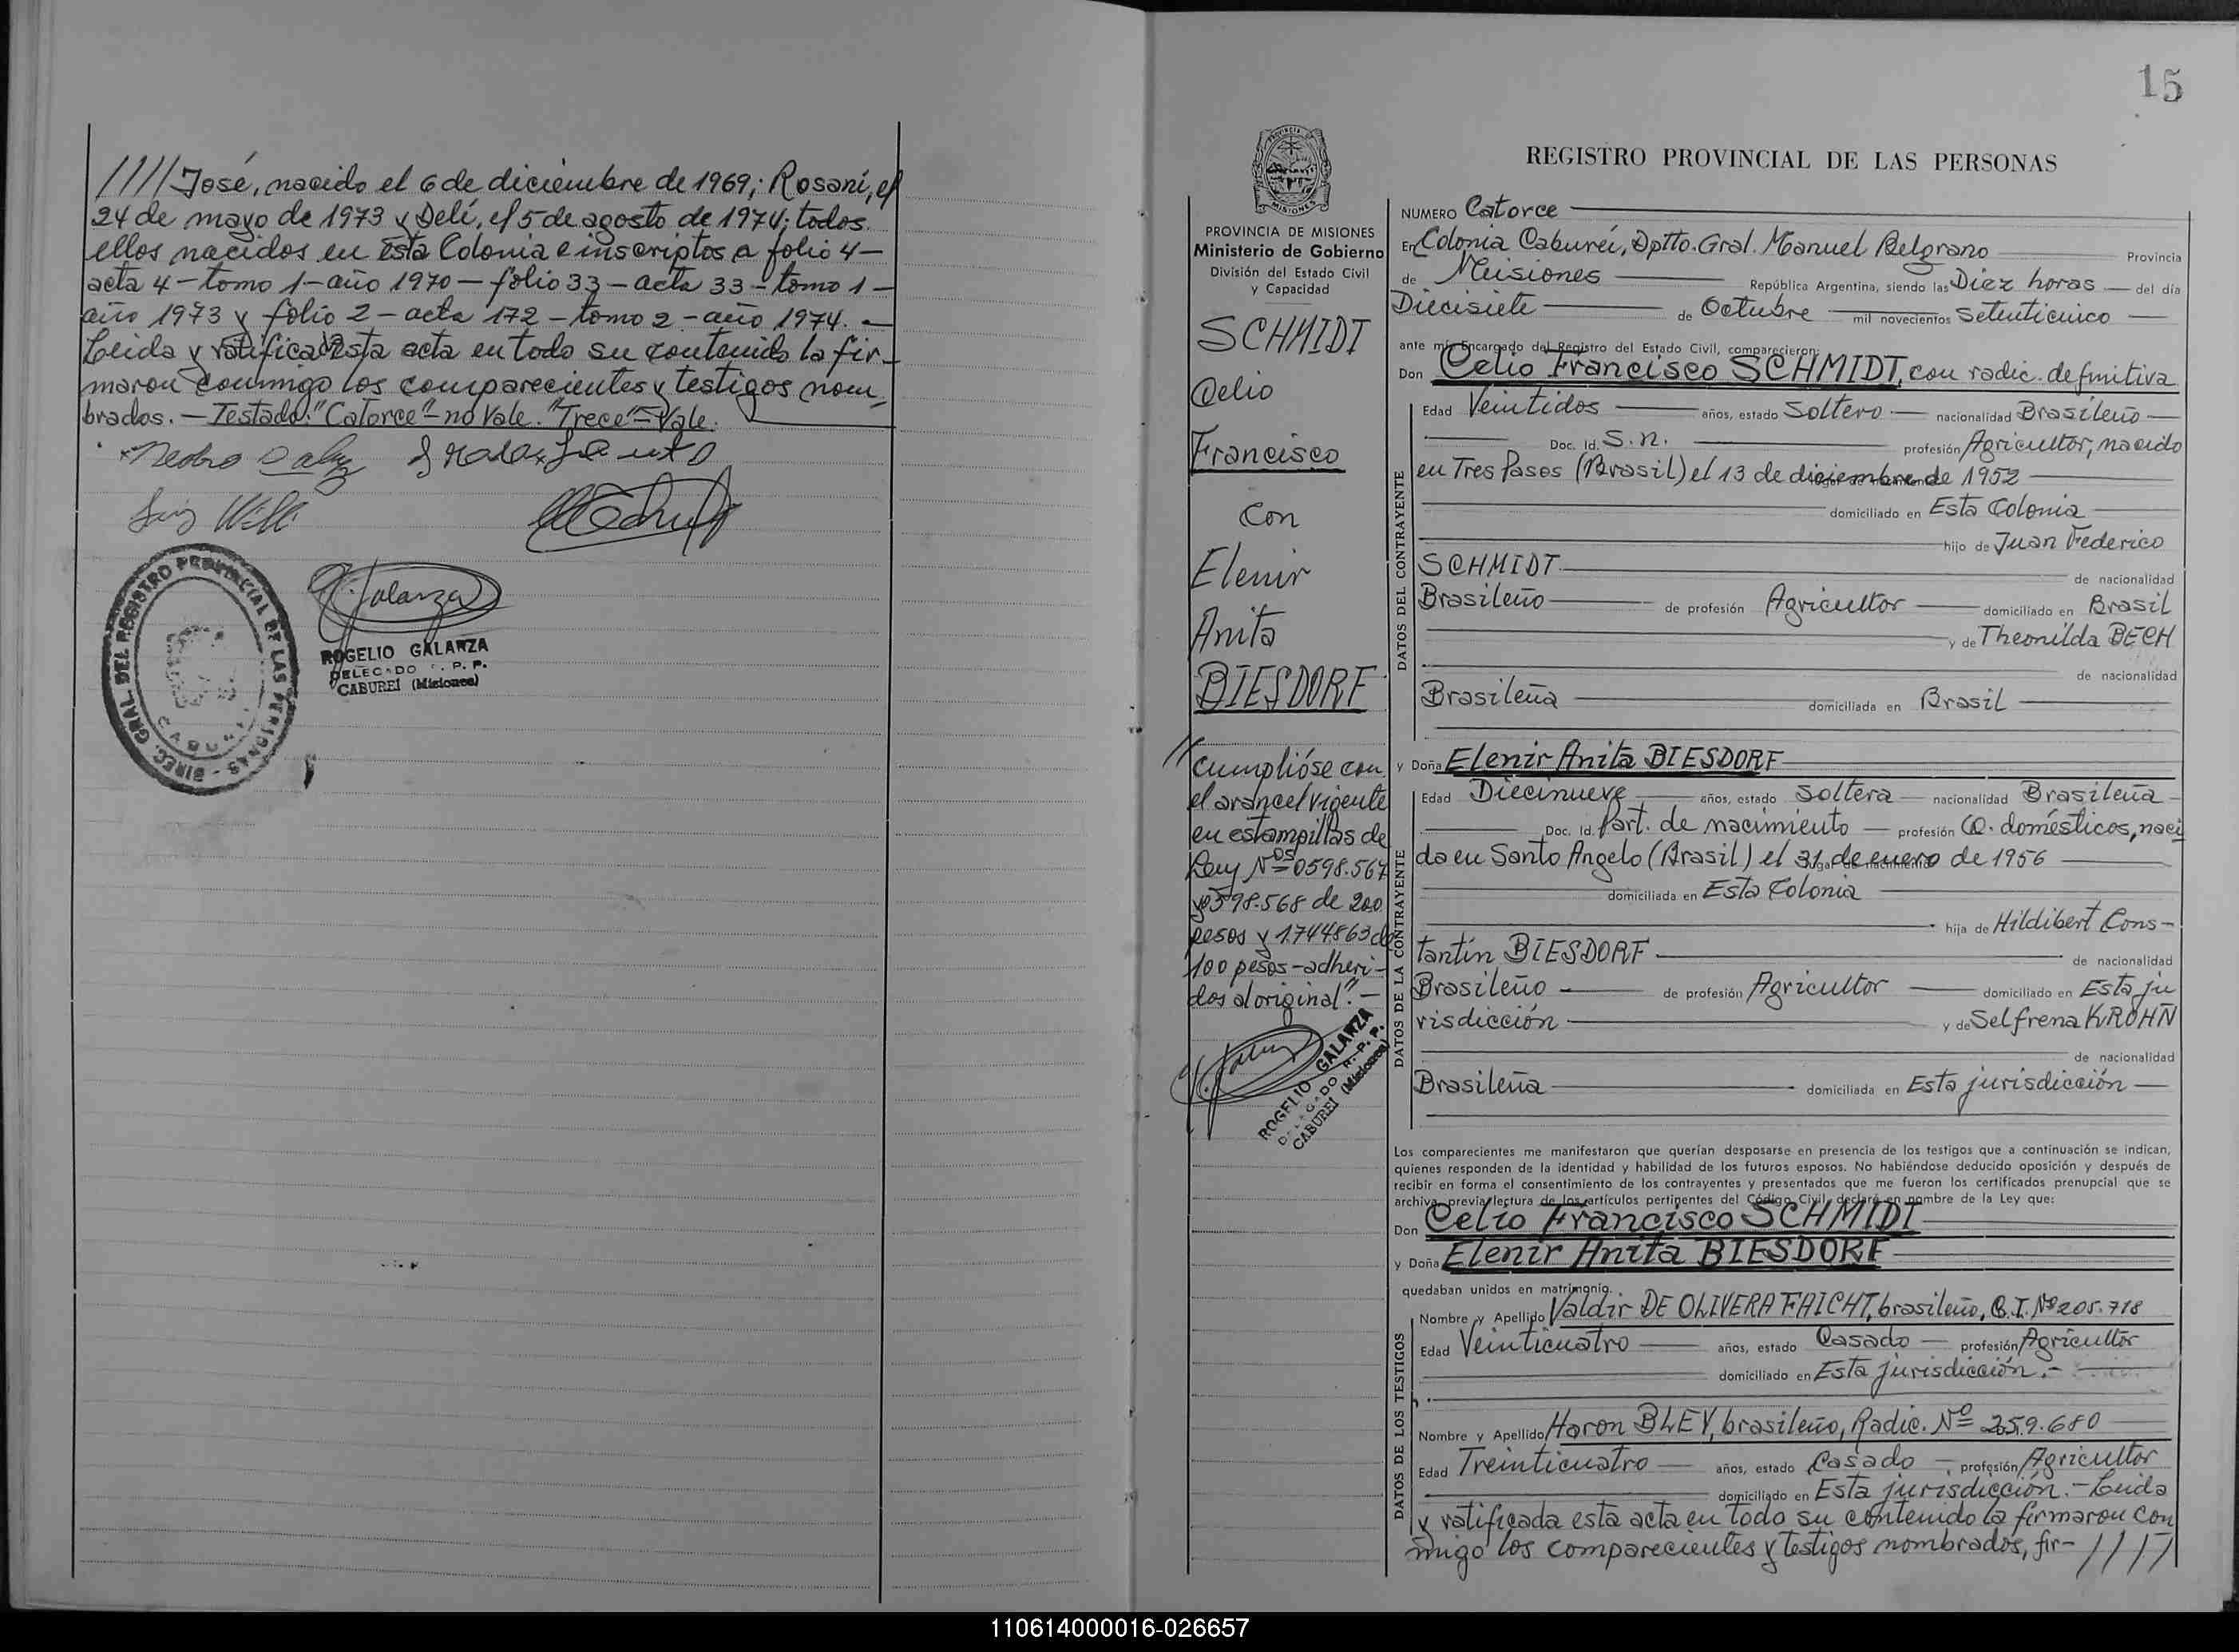 //// José, nacido el 6 de diciembre de 1969; Rosani, el
24 de mayo de 1973 y Deli, el 5 de agosto de 1974; todos
ellos nacidos en esta Colonia e inscriptos a folio 4-
acta 4 - tomo 1 - año 1970 - folio 33 - acta 33 - tomo 1 -
año 1973 y folio 2 - acta 172 - tomo 2 - año 1974. -
Leida y ratificada esta acta en todo su contenido la fir-
maron conmigo los comparecientes y testigos nom-
brados. - Testado: "Catorce" - no Vale. "Trece" - Vale.
DIREC. GRAL. DEL REGISTRO PROVINCIAL DE LAS PERSONAS
ROGELIO GALARZA
DELEGADO R. P. P.
CABUREI (Misiones)
15
PROVINCIA DE MISIONES
Ministerio de Gobierno
División del Estado Civil
y Capacidad
SCHMIDT
Celio
Francisco
con
Elenir
Anita
BIESDORF
"Cumplióse con
el arancel vigente
en estampillas de
Ley Nos 0598.567
y 0598.568 de 200
pesos y 1744863 de
100 pesos - adheri-
dos al original". -
ROGELIO GALARZA
DELEGADO R. P. P.
CABUREI (Misiones)
REGISTRO PROVINCIAL DE LAS PERSONAS
NUMERO Catorce
En Colonia Caburei, Dptto. Gral. Manuel Belgrano Provincia
de Misiones República Argentina, siendo las Diez horas del día
Diecisiete de Octubre mil novecientos setenticinco
ante mí, Encargado del Registro del Estado Civil, comparecieron:
Don Celio Francisco SCHMIDT, con radic. definitiva
DATOS DEL CONTRAYENTE
Edad Veintidos años, estado Soltero nacionalidad Brasileño
Doc. Id. S.n. profesión Agricultor, nacido
en Tres Pasos (Brasil) el 13 de diciembre de 1952
domiciliado en Esta Colonia
hijo de Juan Federico
SCHMIDT de nacionalidad
Brasileño de profesión Agricultor domiciliado en Brasil
y de Theonilda BECH
de nacionalidad
Brasileña domiciliada en Brasil
y Doña Elenir Anita BIESDORF
DATOS DE LA CONTRAYENTE
Edad Diecinueve años, estado Soltera nacionalidad Brasileña
Doc. Id. Part. de nacimiento profesión Q. domésticos, naci
da en Santo Angelo (Brasil) el 31 de enero de 1956
domiciliada en Esta Colonia
hija de Hildibert Cons-
tantin BIESDORF de nacionalidad
Brasileño de profesión Agricultor domiciliado en Esta ju
risdicción y de Selfrena KROHN
de nacionalidad
Brasileña domiciliada en Esta jurisdicción
Los comparecientes me manifestaron que querían desposarse en presencia de los testigos que a continuación se indican,
quienes responden de la identidad y habilidad de los futuros esposos. No habiéndose deducido oposición y después de
recibir en forma el consentimiento de los contrayentes y presentados que me fueron los certificados prenupcial que se
archiva, previa lectura de los artículos pertinentes del Código Civil, declaré en nombre de la Ley que:
Don Celio Francisco SCHMIDT
y Doña Elenir Anita BIESDORF
quedaban unidos en matrimonio.
DATOS DE LOS TESTIGOS
Nombre y Apellido Valdir DE OLIVERA FAICHT, brasileño, C.I. Nº 205.718
Edad Veinticuatro años, estado Casado profesión Agricultor
domiciliado en Esta jurisdicción.-
Nombre y Apellido Haron BLEY, brasileño, Radic. Nº 259.680
Edad Treinticuatro años, estado Casado profesión Agricultor
domiciliado en Esta jurisdicción. - Leida
y ratificada esta acta en todo su contenido la firmaron con
migo los comparecientes y testigos nombrados, fir- ////
110614000016-026657